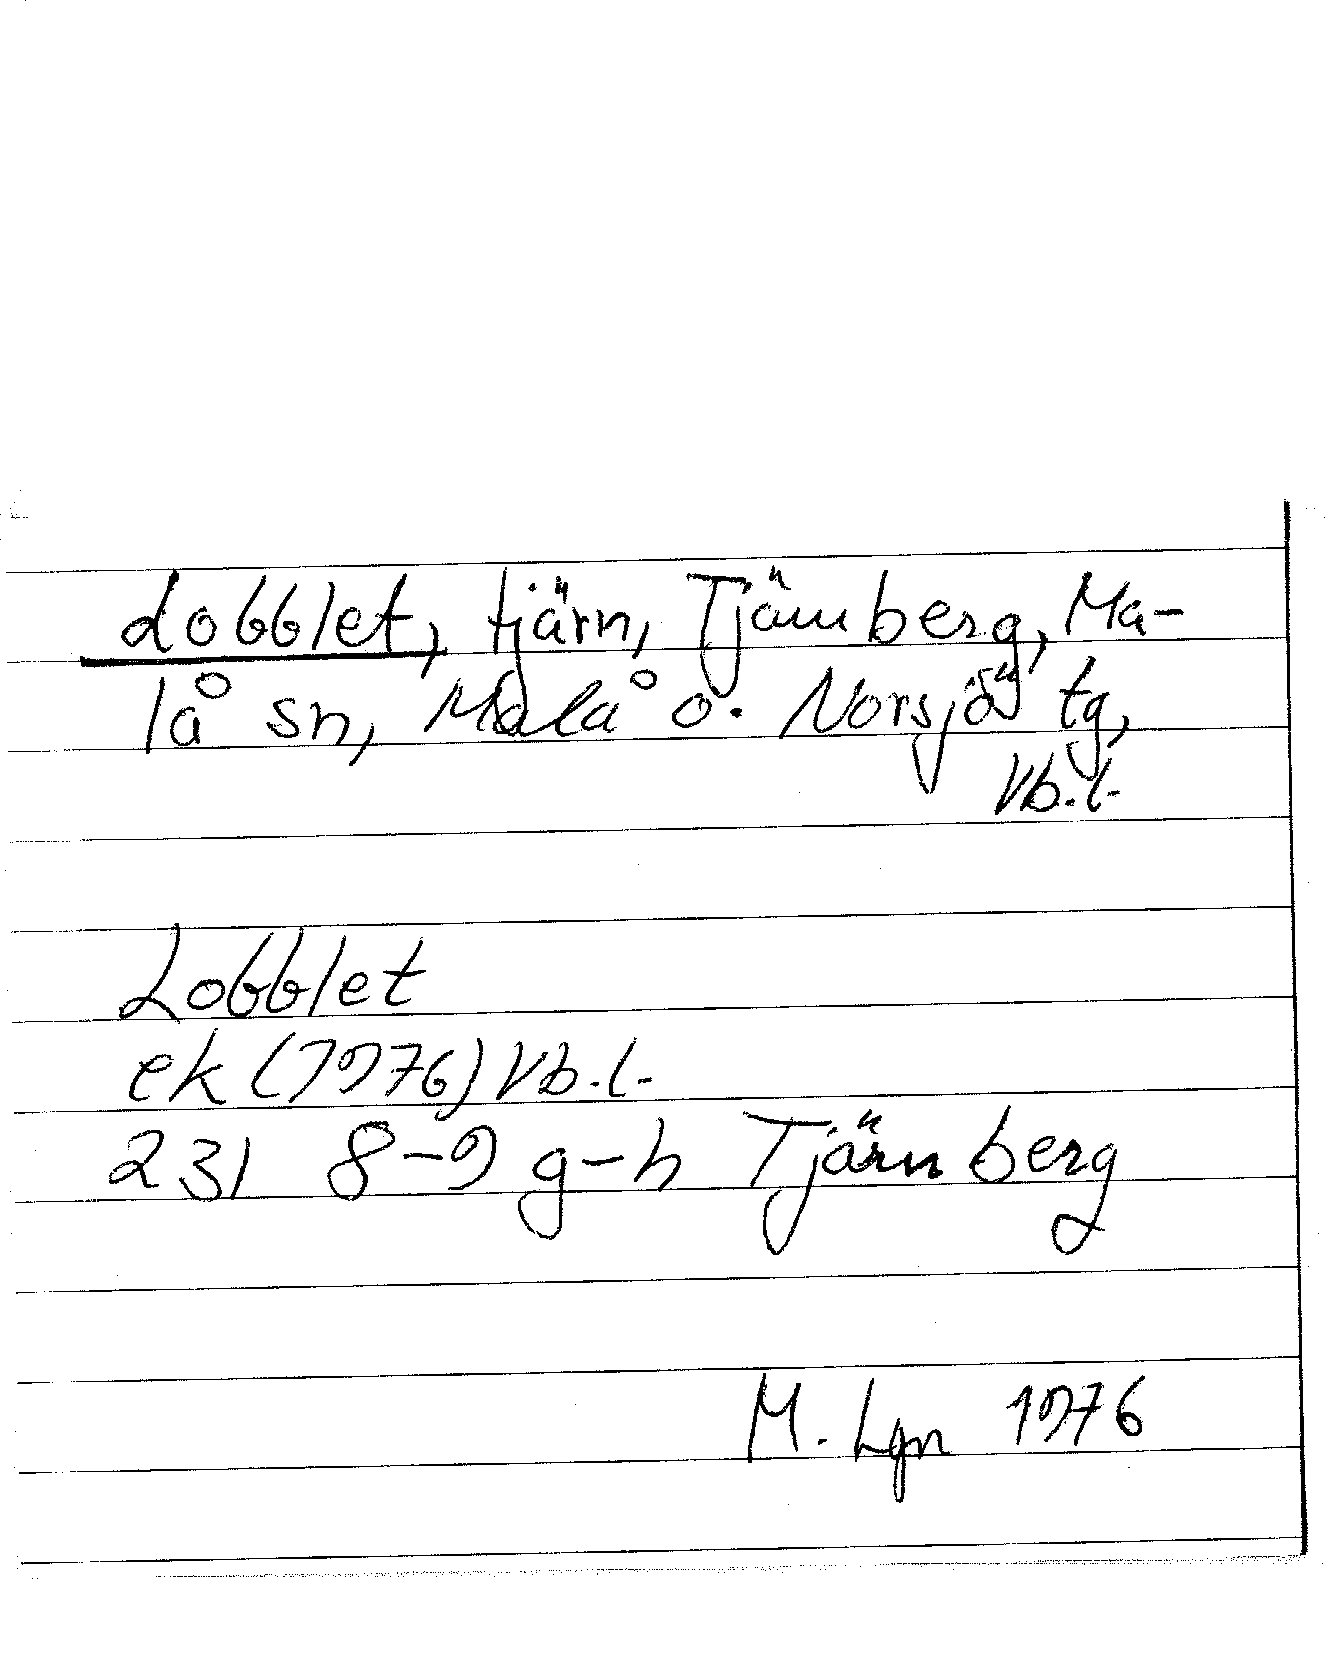 Lobblet, tjärn, Tjärnberg, Ma-
lå sn, Malå o. Norsjö tg,
Vb.l.
Lobblet
ek (1976) Vb.l.
231 8-9 g-h Tjärnberg
M. Lgn 1976